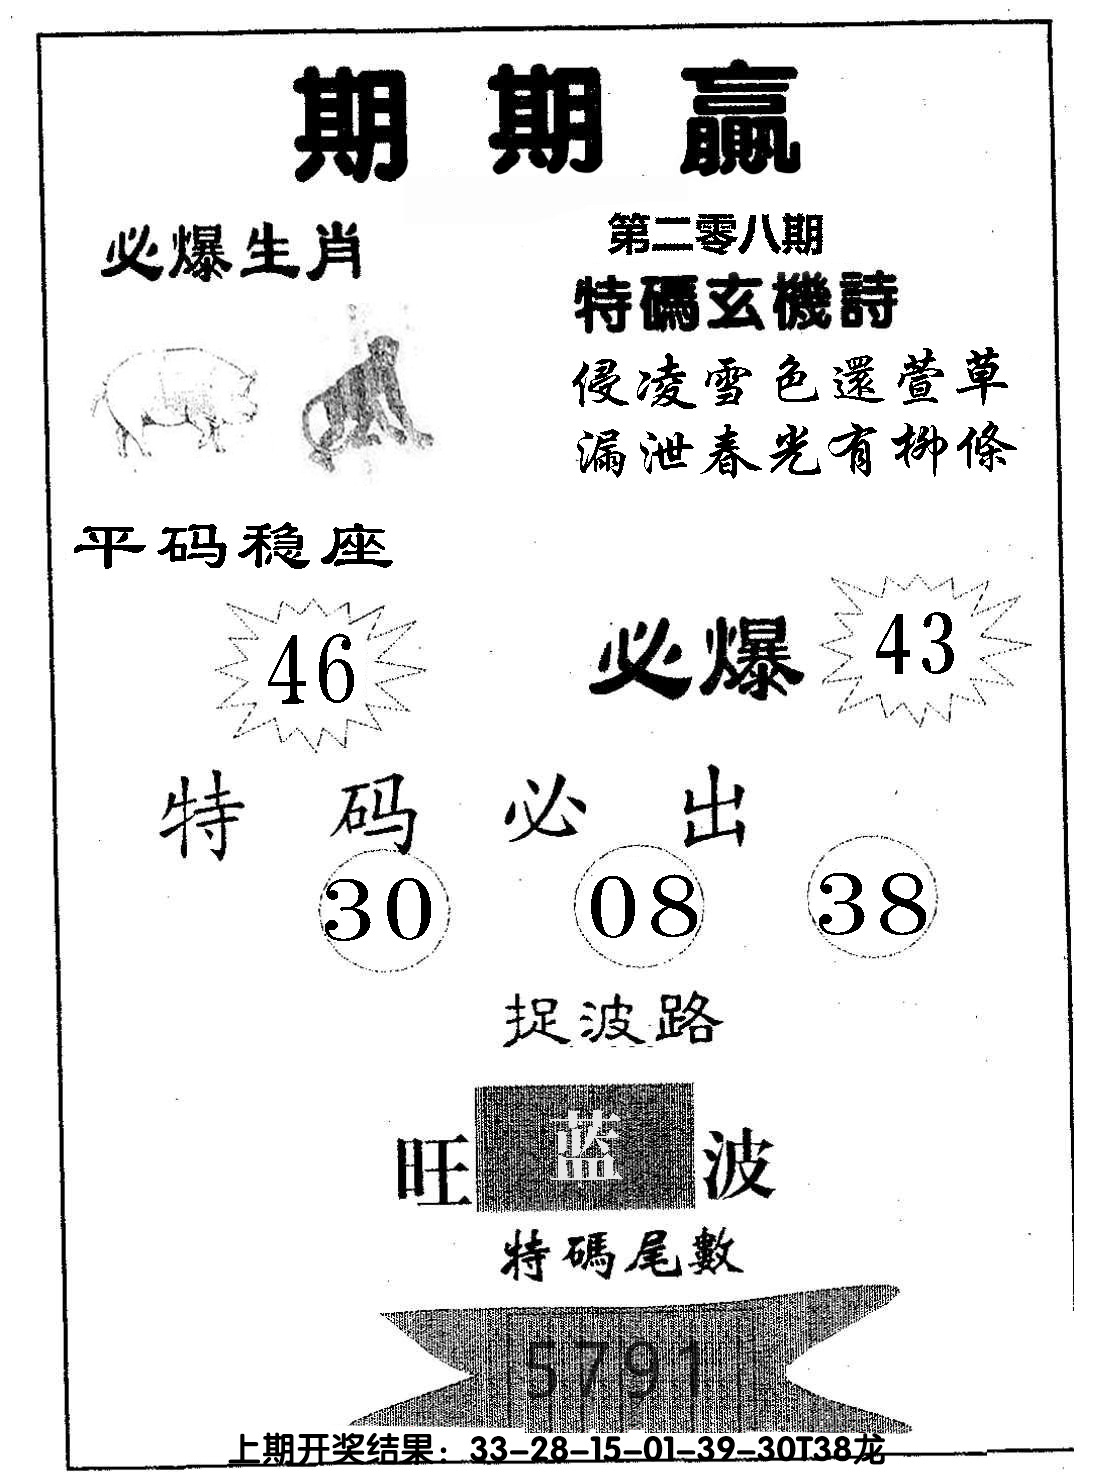 期期贏
必爆生肖
第二零八期
特碼玄機詩
侵凌雪色還萱草
漏泄春光有柳條
平码稳座
46
必爆 43
特码必出
30 08 38
捉波路
旺 蓝 波
特碼尾數
5791
上期开奖结果：33-28-15-01-39-30T38龙